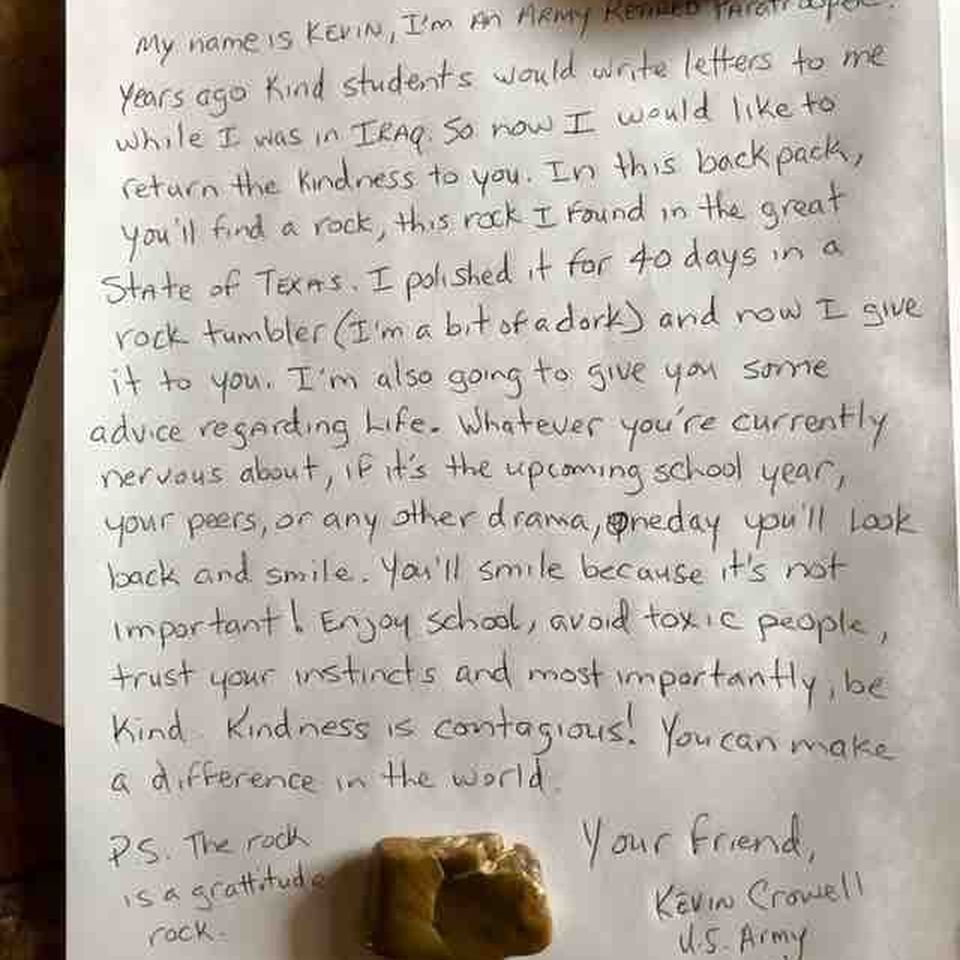 My name is KEVIN, I'm an ARMY RETIRED Paratrooper.
Years ago kind students would write letters to me
while I was in IRAQ. So now I would like to
return the kindness to you. In this backpack,
you'll find a rock, this rock I found in the great
State of Texas. I polished it for 40 days in a
rock tumbler (I'm a bit of a dork) and now I give
it to you. I'm also going to give you some
advice regarding Life. Whatever you're currently
nervous about, if it's the upcoming school year,
your peers, or any other drama, oneday you'll Look
back and smile. You'll smile because it's not
important! Enjoy school, avoid toxic people,
trust your instincts and most importantly, be
Kind. Kindness is contagious! You can make
a difference in the world.
PS. The rock
is a grattitude
rock.
Your friend,
Kevin Crowell
U.S. Army